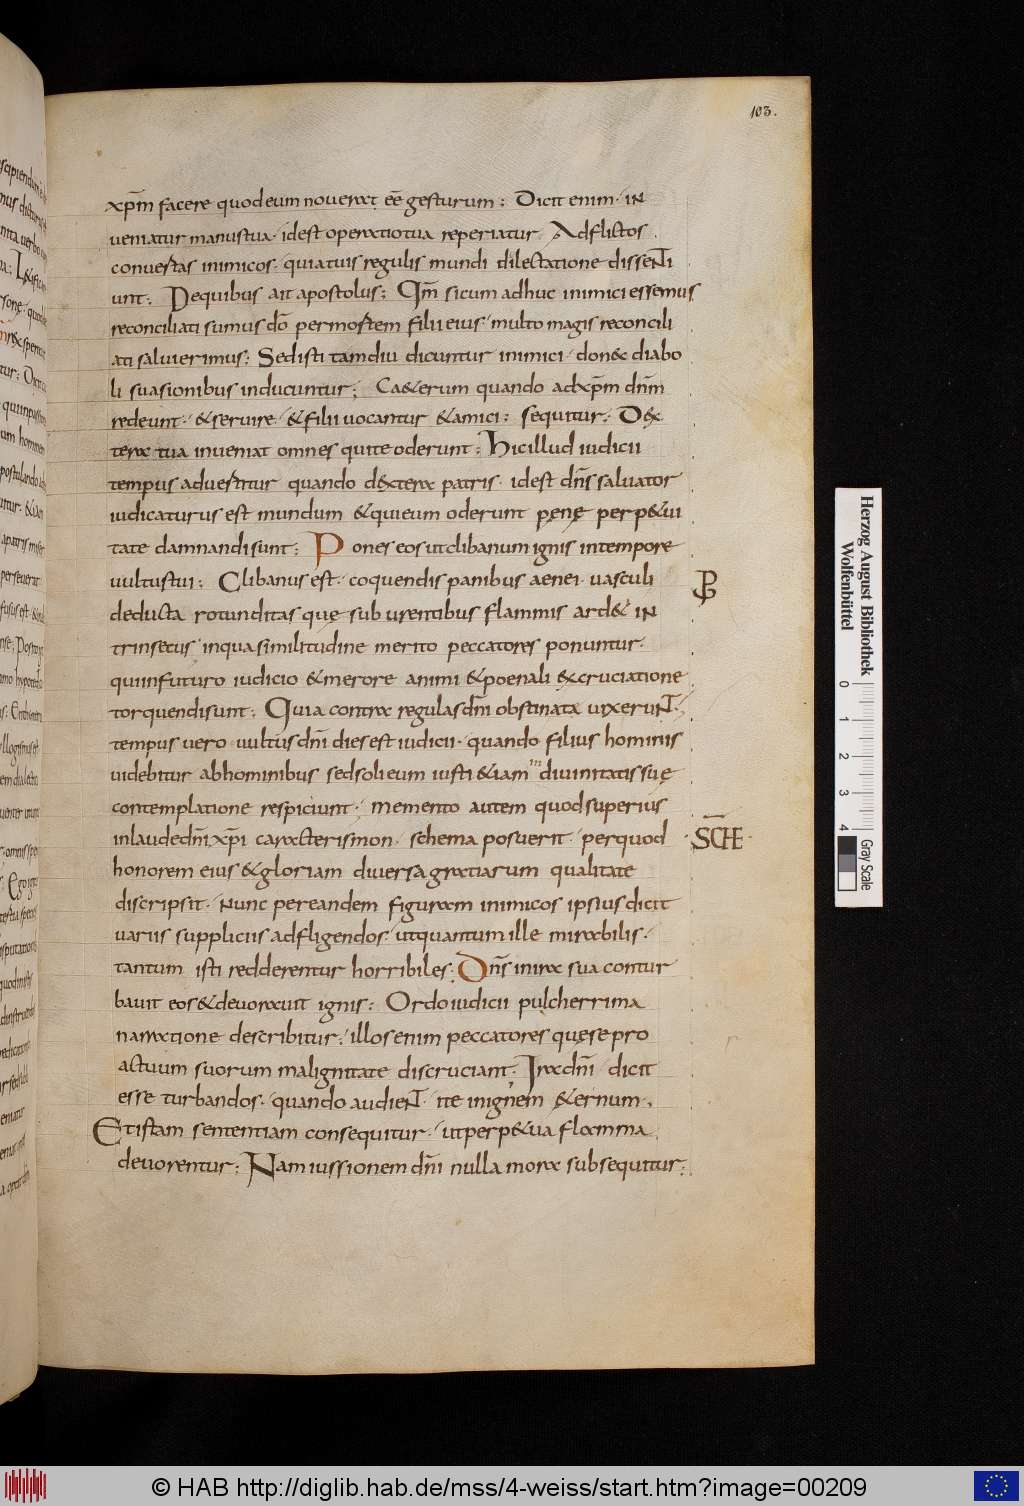 103.
xp̄m facere quod eum noverat eē gesturum; Dicit enim · in
veniatur manus tua · id est operatio tua reperiatur. Adflictos
convertas inimicos · quia tuis regulis mundi dilectatione dissenti
unt; De quibus ait apostolus; Qm̄ si cum adhuc inimici essemus
reconciliati sumus dō per mortem filii eius · multo magis reconcili
ati salvi erimus; Sed isti tamdiu dicuntur inimici · donec diabo
li suasionibus inducuntur; Ca&erum quando ad xp̄m dn̄m
redeunt · & servire · & filii vocantur & amici; sequitur; Dex
tera tua inveniat omnes qui te oderunt; Hic illud iudicii
tempus advertitur quando dextera patris · id est dn̄s salvator
iudicaturus est mundum & qui eum oderunt pęnę perp&ui
tate damnandi sunt; Pones eos ut clibanum ignis in tempore
vultus tui; Clibanus est · coquendis panibus aenei · vasculi
deducta rotunditas quę sub urentibus flammis ard& in
trinsecus · in qua similitudine merito peccatores ponuntur ·
qui in futuro iudicio & merore animi & poenali excruciatione
torquendi sunt; Quia contra regulas dn̄i obstinata vixerunt ·
tempus vero vultus dn̄i dies est iudicii · quando filius hominis
videbitur ab hominibus sed soli eum iusti & iam m divinitatis suę
contemplatione respiciunt · memento autem quod superius
in laude dn̄i xp̄i caracterismon · schema posuerit · per quod
SCHE
honorem eius & gloriam diversa gratiarum qualitate
discripsit · Nunc per eandem figuram inimicos ipsius dicit
variis suppliciis adfligendos · ut quantum ille mirabilis ·
tantum isti redderentur horribiles. Dn̄s in ira sua contur
bavit eos & devoravit ignis; Ordo iudicii pulcherrima
narratione describitur · illos enim peccatores quę se pro
actuum suorum malignitate discruciant · Ira dn̄i dicit
esse turbandos · quando audient · ite in ignem &ernum.
Et istam sententiam consequitur · ut perp&ua flamma
devorentur; Nam iussionem dn̄i nulla mora subsequitur;
Herzog August Bibliothek
Wolfenbüttel
0 1 2 3 4
Gray Scale
© HAB http://diglib.hab.de/mss/4-weiss/start.htm?image=00209